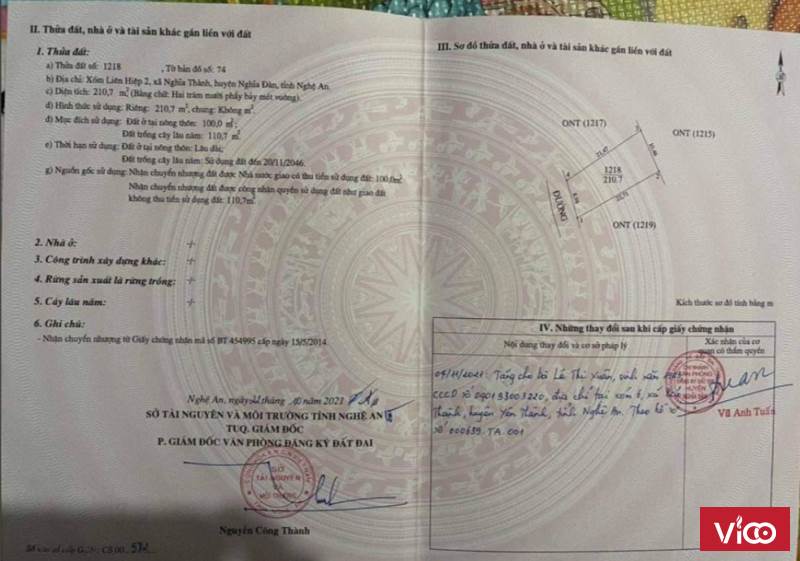 II. Thửa đất, nhà ở và tài sản khác gắn liền với đất
1. Thửa đất:
a) Thửa đất số: 1218 , Tờ bản đồ số: 74
b) Địa chỉ: Xóm Liên Hiệp 2, xã Nghĩa Thành, huyện Nghĩa Đàn, tỉnh Nghệ An.
c) Diện tích: 210,7 m², (Bằng chữ: Hai trăm mười phẩy bảy mét vuông).
d) Hình thức sử dụng: Riêng: 210,7 m², chung: Không m².
đ) Mục đích sử dụng: Đất ở tại nông thôn: 100,0 m²;
Đất trồng cây lâu năm: 110,7 m²
e) Thời hạn sử dụng: Đất ở tại nông thôn: Lâu dài;
Đất trồng cây lâu năm: Sử dụng đất đến 20/11/2046.
g) Nguồn gốc sử dụng: Nhận chuyển nhượng đất được Nhà nước giao có thu tiền sử dụng đất: 100,0m²
Nhận chuyển nhượng đất được công nhận quyền sử dụng đất như giao đất
không thu tiền sử dụng đất: 110,7m²
2. Nhà ở:
3. Công trình xây dựng khác:
4. Rừng sản xuất là rừng trồng:
5. Cây lâu năm:
6. Ghi chú:
- Nhận chuyển nhượng từ Giấy chứng nhận mã số BT 454995 cấp ngày 15/5/2014.
Nghệ An, ngày tháng 10 năm 2021
SỞ TÀI NGUYÊN VÀ MÔI TRƯỜNG TỈNH NGHỆ AN
TUQ. GIÁM ĐỐC
P. GIÁM ĐỐC VĂN PHÒNG ĐĂNG KÝ ĐẤT ĐAI
SỞ
TÀI NGUYÊN
VÀ
MÔI TRƯỜNG
Nguyễn Công Thành
Số vào sổ cấp GCN: CS 00
III. Sơ đồ thửa đất, nhà ở và tài sản khác gắn liền với đất
ONT (1217)
ONT (1215)
1218
210.7
ĐƯỜNG
ONT (1219)
Kích thước sơ đồ tính bằng m
IV. Những thay đổi sau khi cấp giấy chứng nhận
Nội dung thay đổi và cơ sở pháp lý
Xác nhận của cơ quan có thẩm quyền
Tặng cho bà Lê Thị Xuân, sinh năm
CCCD số địa chỉ tại xóm 6, xã
Thành, huyện Yên Thành, tỉnh Nghệ An. Theo hồ sơ
số 000639.TA.001
Võ Anh Tuấn
ViCO